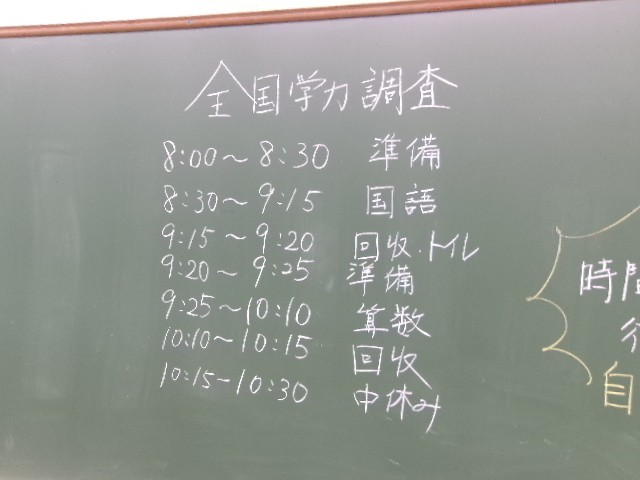 全国学力調査
8:00～8:30 準備
8:30～9:15 国語
9:15～9:20 回収・トイレ
9:20～9:25 準備
9:25～10:10 算数
10:10～10:15 回収
10:15～10:30 中休み
時間
行
自